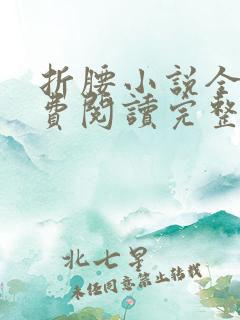 折腰小說全
費閱讀完整
北七星
未經同意禁止转载